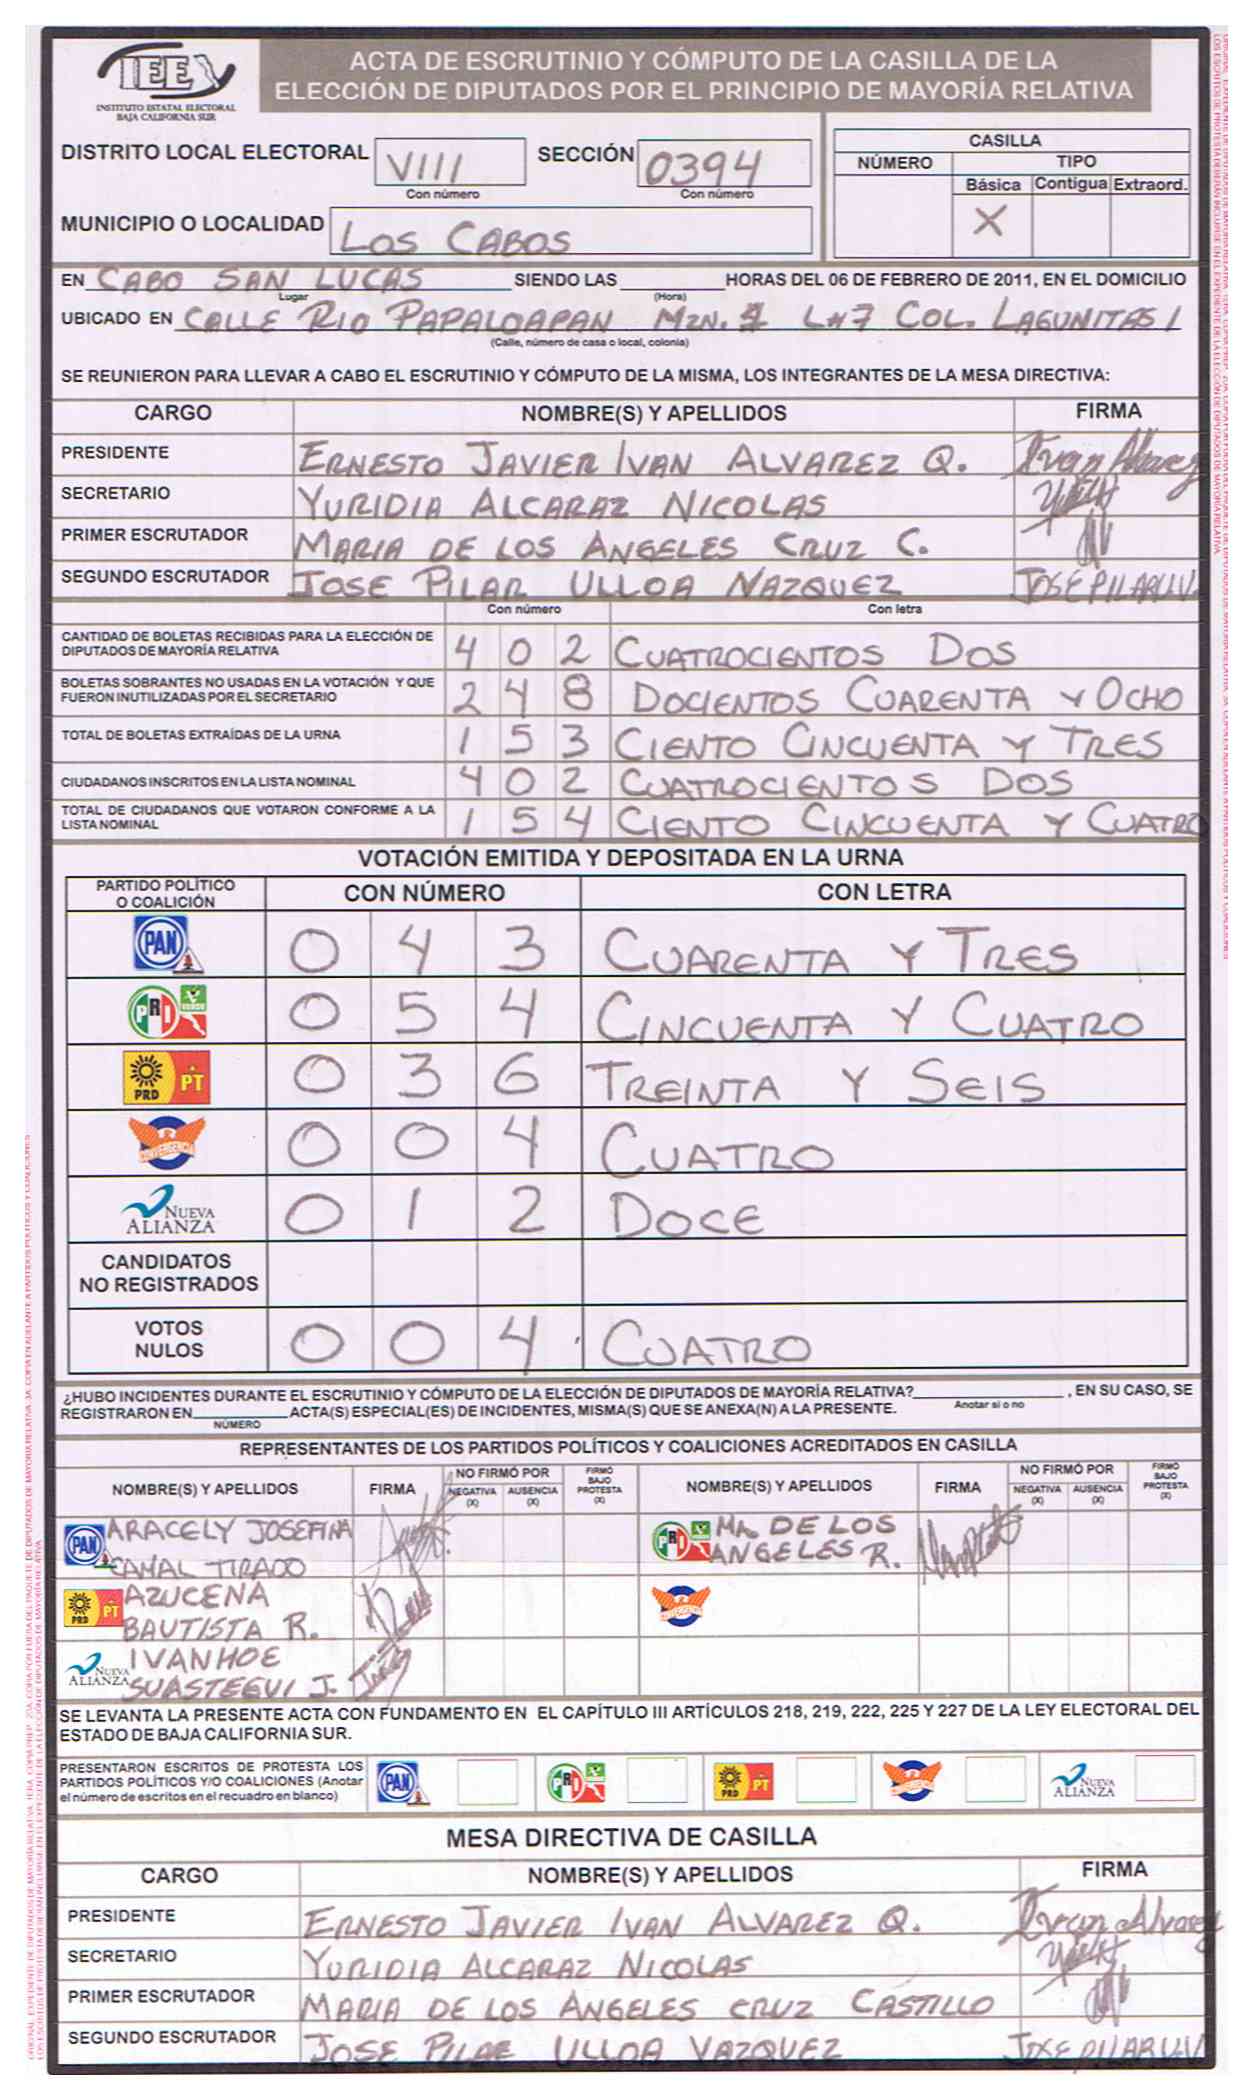 IEE
INSTITUTO ESTATAL ELECTORAL
BAJA CALIFORNIA SUR
ACTA DE ESCRUTINIO Y CÓMPUTO DE LA CASILLA DE LA
ELECCIÓN DE DIPUTADOS POR EL PRINCIPIO DE MAYORÍA RELATIVA
DISTRITO LOCAL ELECTORAL VIII SECCIÓN 0394
Con número Con número
MUNICIPIO O LOCALIDAD LOS CABOS
CASILLA
NÚMERO TIPO
Básica Contigua Extraord.
X
EN CABO SAN LUCAS SIENDO LAS HORAS DEL 06 DE FEBRERO DE 2011, EN EL DOMICILIO
Lugar (Hora)
UBICADO EN CALLE RIO PAPALOAPAN MZN. L#7 COL. LAGUNITAS I
(Calle, número de casa o local, colonia)
SE REUNIERON PARA LLEVAR A CABO EL ESCRUTINIO Y CÓMPUTO DE LA MISMA, LOS INTEGRANTES DE LA MESA DIRECTIVA:
CARGO NOMBRE(S) Y APELLIDOS FIRMA
PRESIDENTE ERNESTO JAVIER IVAN ALVAREZ Q. Ivan Alvarez
SECRETARIO YURIDIA ALCARAZ NICOLAS
PRIMER ESCRUTADOR MARIA DE LOS ANGELES CRUZ C.
SEGUNDO ESCRUTADOR JOSE PILAR ULLOA NAZQUEZ JOSE PILAR U.V.
Con número Con letra
CANTIDAD DE BOLETAS RECIBIDAS PARA LA ELECCIÓN DE
DIPUTADOS DE MAYORÍA RELATIVA 4 0 2 CUATROCIENTOS DOS
BOLETAS SOBRANTES NO USADAS EN LA VOTACIÓN Y QUE
FUERON INUTILIZADAS POR EL SECRETARIO 2 4 8 DOCIENTOS CUARENTA Y OCHO
TOTAL DE BOLETAS EXTRAÍDAS DE LA URNA 1 5 3 CIENTO CINCUENTA Y TRES
CIUDADANOS INSCRITOS EN LA LISTA NOMINAL 4 0 2 CUATROCIENTOS DOS
TOTAL DE CIUDADANOS QUE VOTARON CONFORME A LA
LISTA NOMINAL 1 5 4 CIENTO CINCUENTA Y CUATRO
VOTACIÓN EMITIDA Y DEPOSITADA EN LA URNA
PARTIDO POLÍTICO
O COALICIÓN CON NÚMERO CON LETRA
PAN 0 4 3 CUARENTA Y TRES
PRI VERDE 0 5 4 CINCUENTA Y CUATRO
PRD PT 0 3 6 TREINTA Y SEIS
CONVERGENCIA 0 0 4 CUATRO
NUEVA ALIANZA 0 1 2 DOCE
CANDIDATOS
NO REGISTRADOS
VOTOS
NULOS 0 0 4 CUATRO
¿HUBO INCIDENTES DURANTE EL ESCRUTINIO Y CÓMPUTO DE LA ELECCIÓN DE DIPUTADOS DE MAYORÍA RELATIVA? , EN SU CASO, SE
Anotar si o no
REGISTRARON EN ACTA(S) ESPECIAL(ES) DE INCIDENTES, MISMA(S) QUE SE ANEXA(N) A LA PRESENTE.
NÚMERO
REPRESENTANTES DE LOS PARTIDOS POLÍTICOS Y COALICIONES ACREDITADOS EN CASILLA
NOMBRE(S) Y APELLIDOS FIRMA NO FIRMÓ POR NEGATIVA (X) AUSENCIA (X) FIRMÓ BAJO PROTESTA (X) NOMBRE(S) Y APELLIDOS FIRMA NO FIRMÓ POR NEGATIVA (X) AUSENCIA (X) FIRMÓ BAJO PROTESTA (X)
PAN ARACELY JOSEFINA PRI MA. DE LOS
CAMAL TIRADO ANGELES R.
PRD PT AZUCENA CONVERGENCIA
BAUTISTA R.
NUEVA ALIANZA IVANHOE
SUASTEGUI J.
SE LEVANTA LA PRESENTE ACTA CON FUNDAMENTO EN EL CAPÍTULO III ARTÍCULOS 218, 219, 222, 225 Y 227 DE LA LEY ELECTORAL DEL
ESTADO DE BAJA CALIFORNIA SUR.
PRESENTARON ESCRITOS DE PROTESTA LOS
PARTIDOS POLÍTICOS Y/O COALICIONES (Anotar
el número de escritos en el recuadro en blanco)
PAN PRI PRD PT CONVERGENCIA NUEVA ALIANZA
MESA DIRECTIVA DE CASILLA
CARGO NOMBRE(S) Y APELLIDOS FIRMA
PRESIDENTE ERNESTO JAVIER IVAN ALVAREZ Q. Ivan Alvarez
SECRETARIO YURIDIA ALCARAZ NICOLAS
PRIMER ESCRUTADOR MARIA DE LOS ANGELES CRUZ CASTILLO
SEGUNDO ESCRUTADOR JOSE PILAR ULLOA VAZQUEZ JOSE PILAR U.V